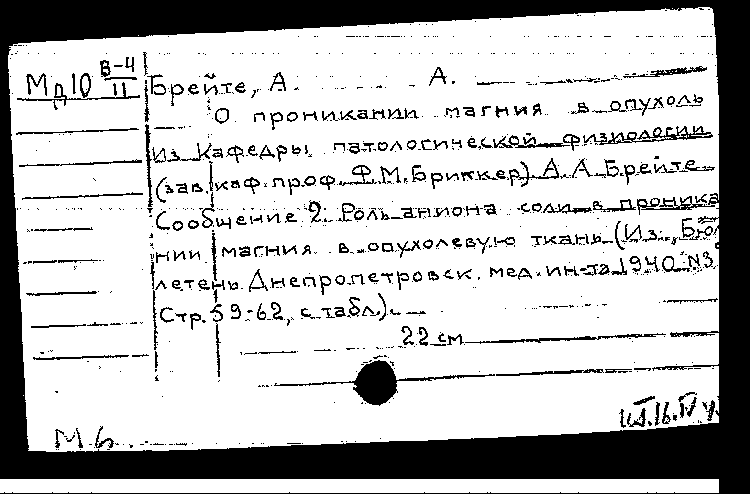 Мд10 В-4/11
Брейте, А. А.
О проникании магния в опухоль
Из кафедры патологической физиологии
(зав. каф. проф. Ф.М. Бриккер) А.А. Брейте
Сообщение 2. Роль аниона соли в проника
нии магния в опухолевую ткань (Из: "Бюл
летень Днепропетровск. мед. ин-та 1940 N3
Стр. 59-62, с табл.).
22 см
М б.